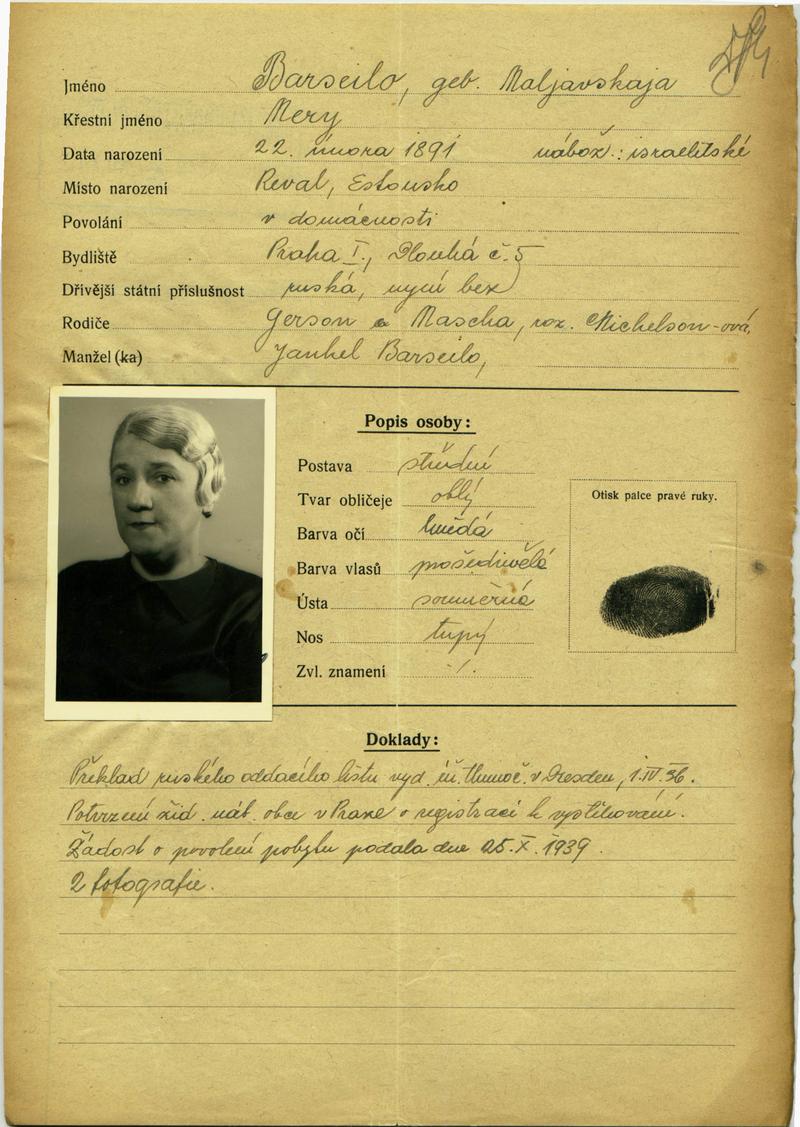 Jméno Barseilo, geb. Maljavskaja
Křestní jméno Mery
Data narození 22. února 1891 nábož.: israelitské
Místo narození Reval, Estonsko
Povolání v domácnosti
Bydliště Praha I., Dlouhá č. 5
Dřívější státní příslušnost ruská, nyní bez
Rodiče Gerson a Mascha, roz. Michelson-ová,
Manžel (ka) Jankel Barseilo,
Popis osoby:
Postava střední
Tvar obličeje oblý
Barva očí hnědá
Barva vlasů prošedivělá
Ústa souměrná
Nos tupý
Zvl. znamení ./.
Otisk palce pravé ruky.
Doklady:
Překlad ruského oddacího listu vyd. úř. tlumoč. v Dresden, 1.IV.36.
Potvrzení žid. náb. obce v Praze o registraci k vystěhování.
Žádost o povolení pobytu podala dne 25.X.1939.
2 fotografie.